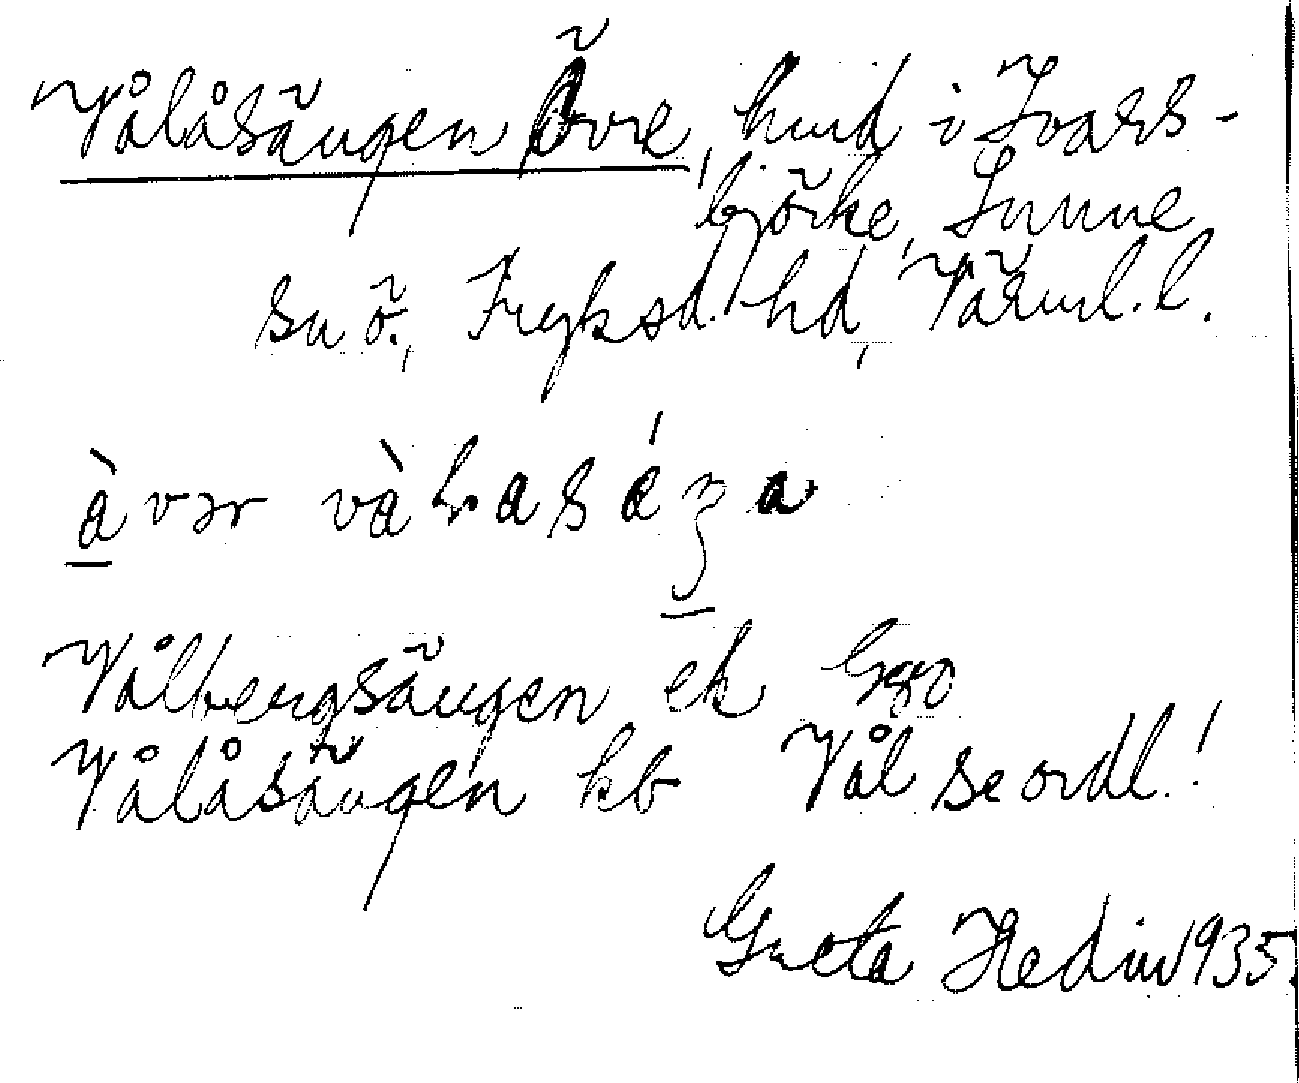 Vålåsängen Övre, hmd i Ivars-
björke, Sunne
sn ö., Fryksd. hd, Värml. l.
Vålbergsängen ek G40
Vålåsängen kb Vål se ordl.!
Greta Hedin 1935.